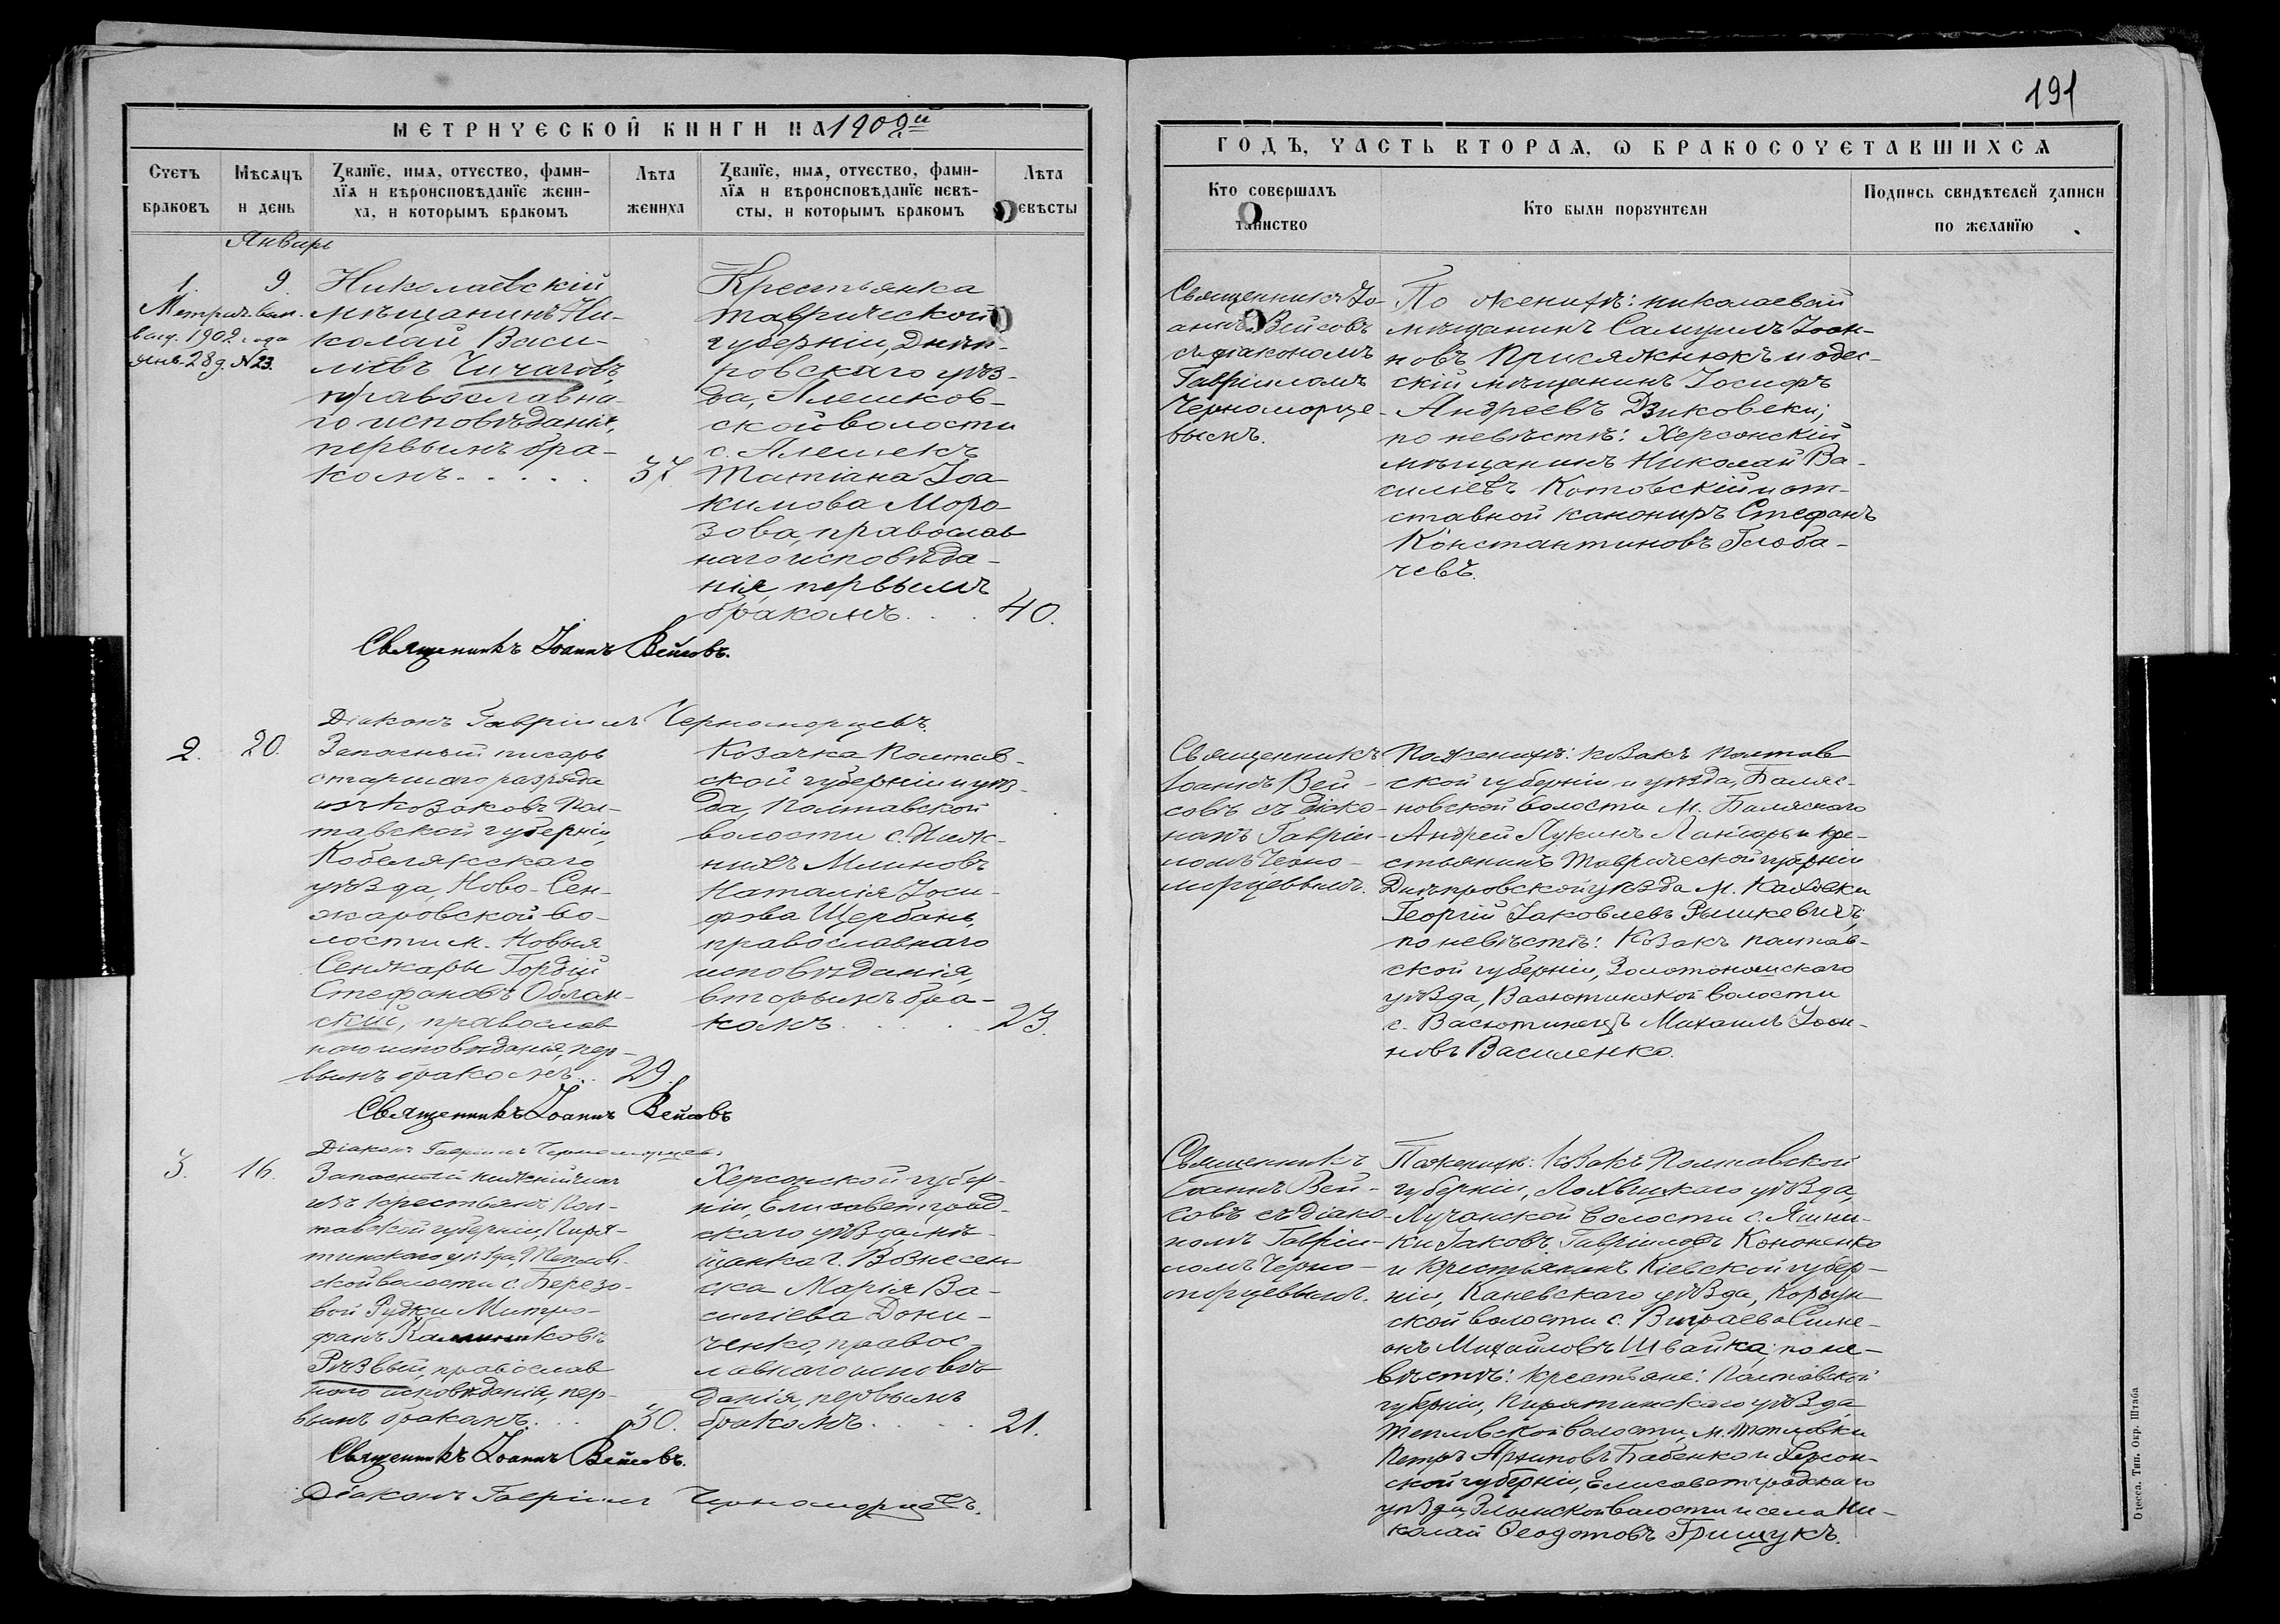 191
МЕТРИЧЕСКОЙ КНИГИ НА 1902й
ГОДЪ, ЧАСТЬ ВТОРАЯ, Ѡ БРАКОСОЧЕТАВШИХСЯ
Счетъ браковъ
Мѣсяцъ и день
Званїе, имя, отчество, фами-
лїя и вѣроисповѣданїе жени-
ха, и которымъ бракомъ
Лѣта жениха
Званїе, имя, отчество, фами-
лїя и вѣроисповѣданїе невѣ-
сты, и которымъ бракомъ
Лѣта невѣсты
Кто совершалъ таинство
Кто были поручители
Подпись свидѣтелей записи
по желанїю
Январь
1.
9.
Метрич. вып.
выд. 1902 года
янв. 28 д. № 23.
Николаевскій
мѣщанинъ Ни-
колай Васи-
ліевъ Чичаговъ,
православна-
го исповѣданія,
первымъ бра-
комъ. . . . .
37
Крестьянка
Таврической
губерніи, Днѣп-
ровскаго уѣз-
да, Алешков-
ской волости
с. Алешекъ
Татіана Іоа-
кимова Моро-
зова, православ-
наго исповѣда-
нія, первымъ
бракомъ. . .
40.
Священникъ Іо-
аннъ Вейсовъ
съ діакономъ
Гавріиломъ
Черноморце-
вымъ.
По женихѣ: николаевскій
мѣщанинъ Самуилъ Іоан-
новъ Присяжнюкъ и одес-
скій мѣщанинъ Іосифъ
Андреевъ Дзиковски;
по невѣстѣ: Херсонскій
мѣщанинъ Николай Ва-
силіевъ Котовскій и от-
ставной канониръ Стефанъ
Константиновъ Глоба-
чевъ.
Священникъ Іоаннъ Вейсовъ.
Діаконъ Гавріилъ Черноморцевъ.
2.
20.
Запасный писарь
старшаго разряда
изъ козаковъ Пол-
тавской губерніи,
Кобелякскаго
уѣзда, Ново-Сен-
жаровской во-
лости м. Новыя
Сенжары Гордій
Стефановъ Облан-
скій, православ-
наго исповѣданія, пер-
вымъ бракомъ. .
29.
Козачка Полтав-
ской губерніи и уѣз-
да, Полтавской
волости с. Ниж-
нихъ Млиновъ
Наталія Іоси-
фова Щербань,
православнаго
исповѣданія,
вторымъ бра-
комъ. . . . .
23.
Священникъ
Іоаннъ Вей-
совъ съ діако-
номъ Гавріи-
ломъ Черно-
морцевымъ.
По женихѣ: козакъ Полтав-
ской губерніи и уѣзда, Баляс-
новской волости М. Балясного
Андрей Лукинъ и кре-
стьянинъ Таврической губерніи
Днѣпровской уѣзда М. Каховки
Георгій Іаковлевъ Рышкевичъ;
по невѣстѣ: Козакъ полтав-
ской губерніи, Золотоношскаго
уѣзда, Васютинской волости
с. Васютинецъ Михаилъ Іоан-
новъ Василенко.
Священникъ Іоаннъ Вейсовъ
Діаконъ Гавріилъ Черноморцевъ
3.
16.
Запасный нижній чинъ
изъ крестьянъ Пол-
тавской губерніи, Пиря-
тинскаго уѣзда, Теплов-
ской волости с. Березо-
вой Рудки Митро-
фанъ
Рѣзвый, православ-
наго исповѣданія, пер-
вымъ бракомъ. . .
30.
Херсонской губер-
ніи, Елисаветград-
скаго уѣзда, мѣ-
щанка г. Вознесен-
ска Марія Ва-
силіева Дони-
ченко, правос-
лавнаго исповѣ-
данія, первымъ
бракомъ. . . . .
21.
Священникъ
Іоаннъ Вей-
совъ съ діако-
номъ Гавріи-
ломъ Черно-
морцевымъ.
По женихѣ: козакъ Полтавской
губерніи, Лохвицкаго уѣзда,
Лучанской волости с. Яшни-
ки Іаковъ Гавріиловъ Кононенко
и крестьянинъ Кіевской губер-
ніи, Каневскаго уѣзда, Корсун-
ской волости с. Выграева Симе-
онъ Михайловъ Швайка; по не-
вѣстѣ: крестьяне: Полтавской
губерніи, Пирятинскаго уѣзда
Тепловской волости, м. Тепловки
Петръ Архиповъ Бабенко и Херсон-
ской губерніи, Елисаветградскаго
уѣзда, Злынской волости и села Ни-
колай Ѳеодотовъ Грищукъ.
Священникъ Іоаннъ Вейсовъ.
Діаконъ Гавріилъ Черноморцевъ.
Одесса. Тип. Окр. Штаба